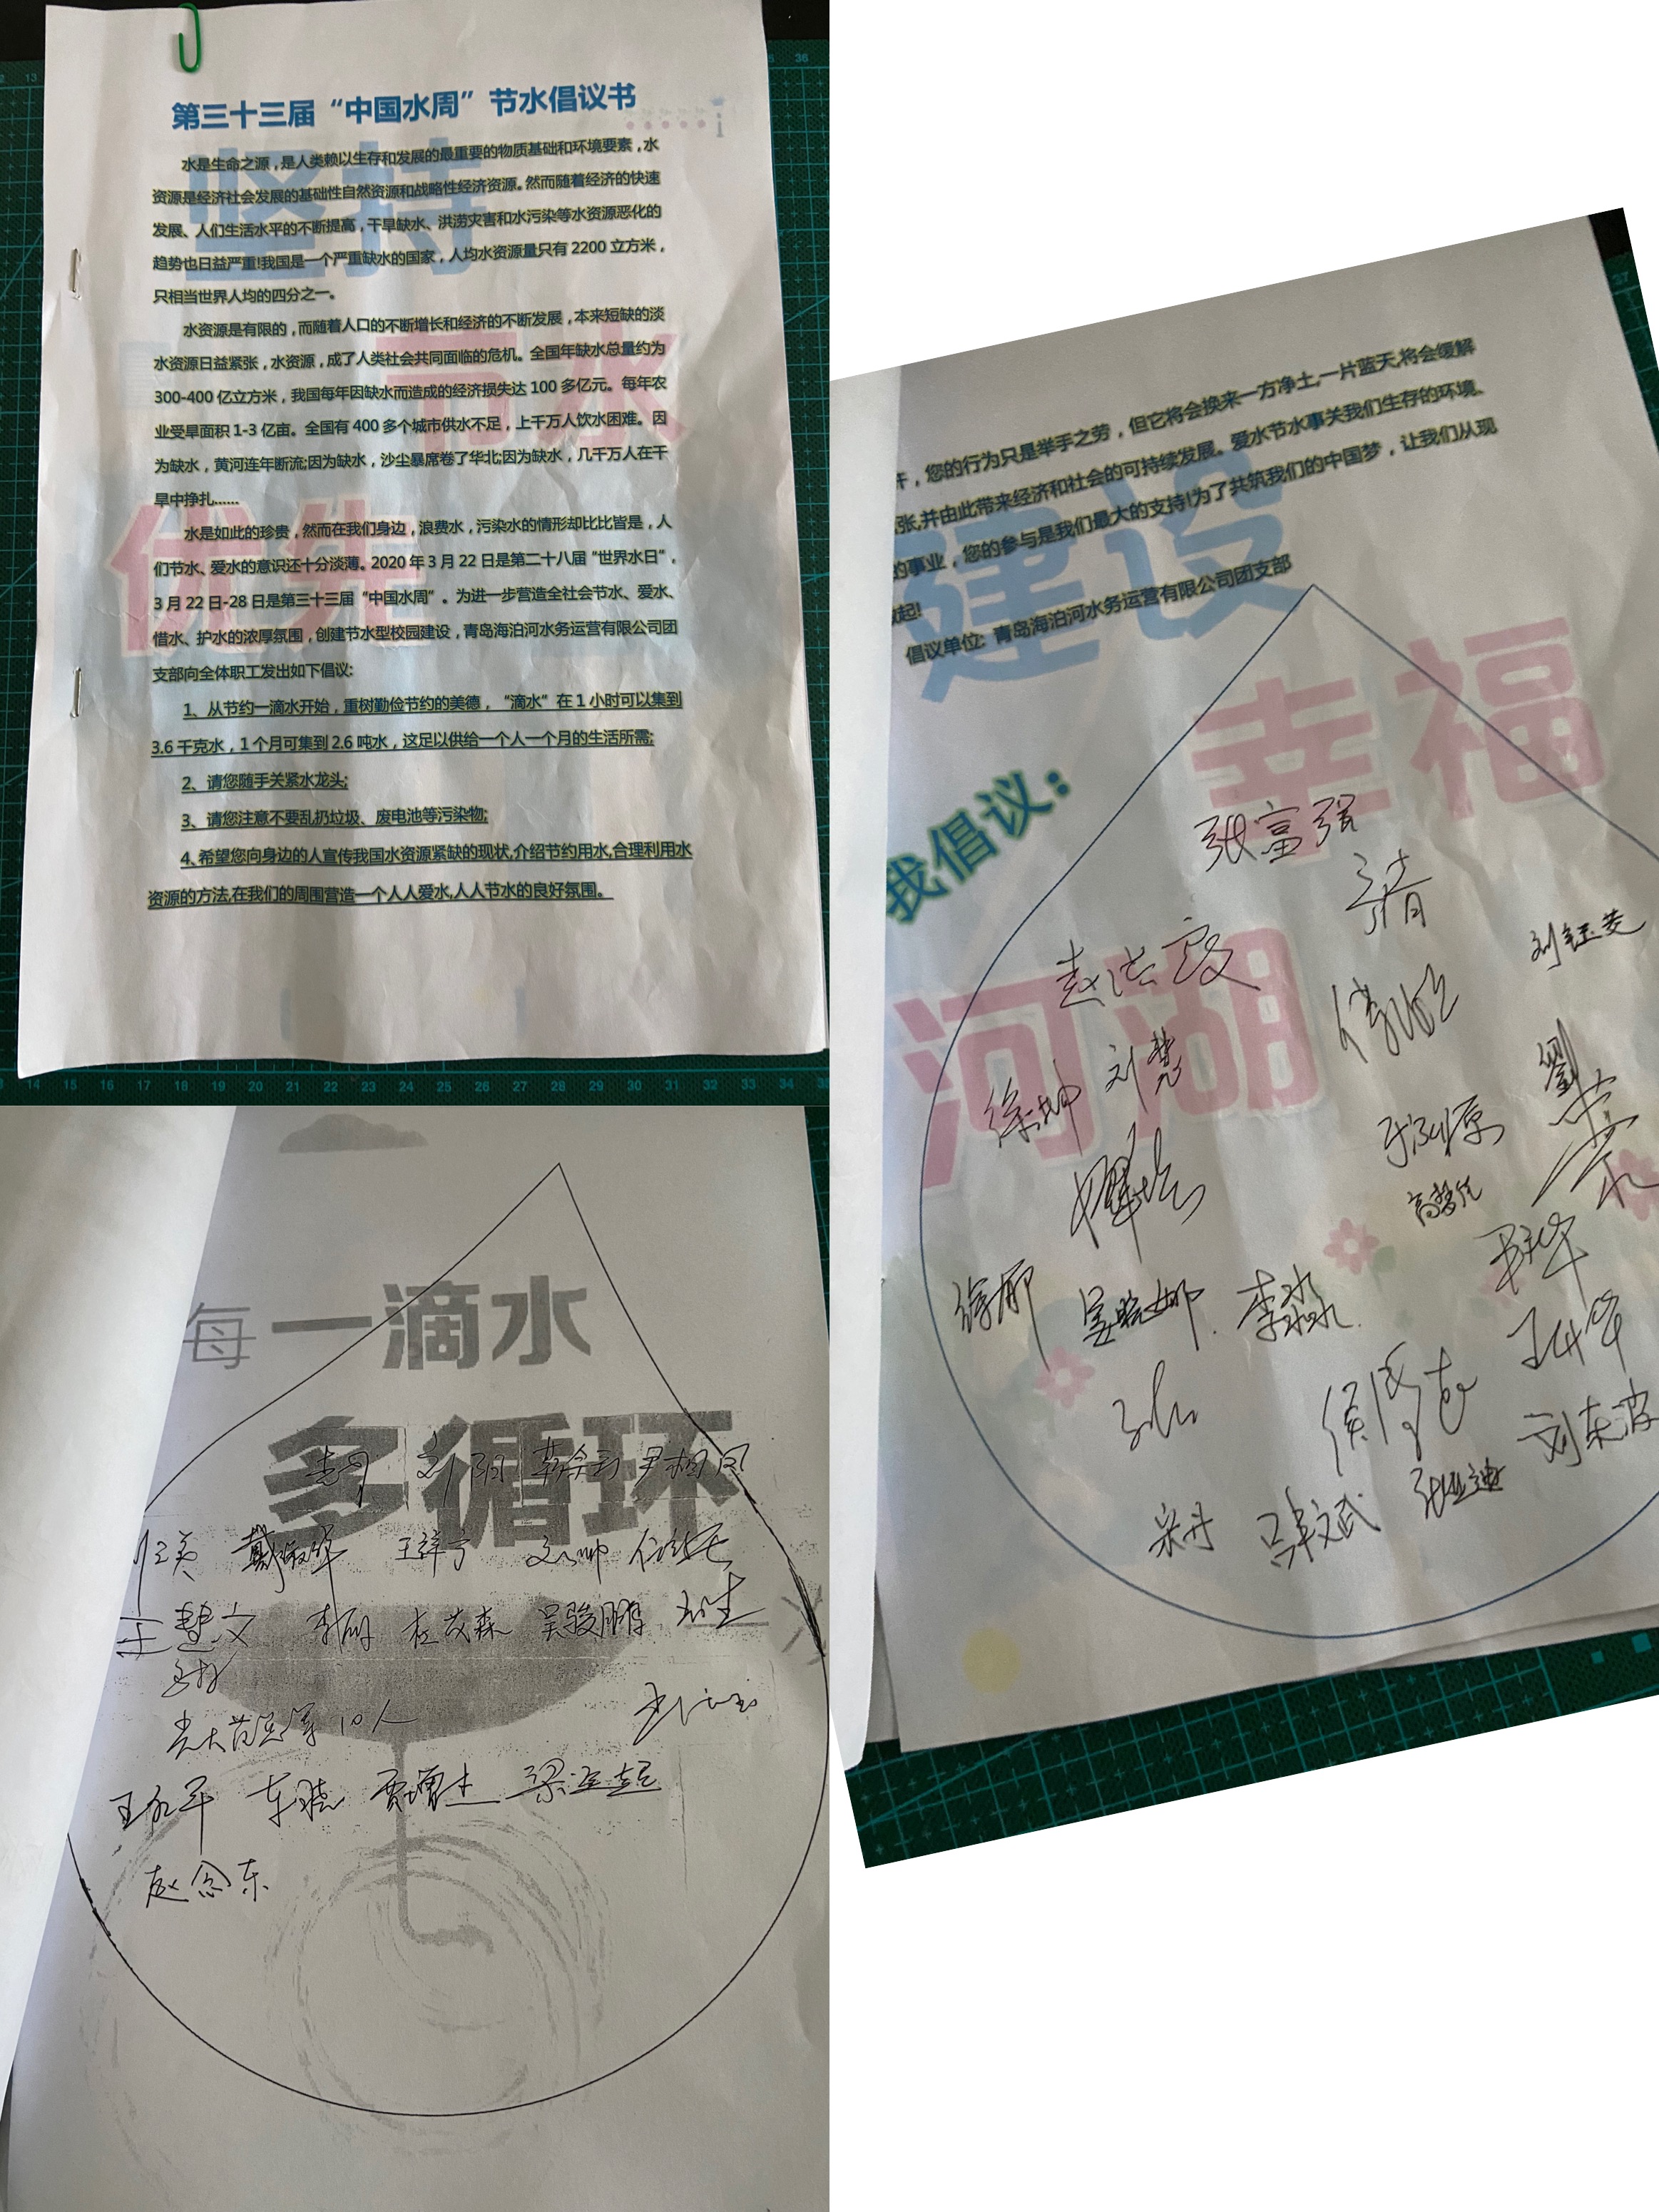 第三十三届“中国水周”节水倡议书
水是生命之源，是人类赖以生存和发展的最重要的物质基础和环境要素，水
资源是经济社会发展的基础性自然资源和战略性经济资源。然而随着经济的快速
发展、人们生活水平的不断提高，干旱缺水、洪涝灾害和水污染等水资源恶化的
趋势也日益严重!我国是一个严重缺水的国家，人均水资源量只有2200立方米，
只相当世界人均的四分之一。
水资源是有限的，而随着人口的不断增长和经济的不断发展，本来短缺的淡
水资源日益紧张，水资源，成了人类社会共同面临的危机。全国年缺水总量约为
300-400亿立方米，我国每年因缺水而造成的经济损失达100多亿元。每年农
业受旱面积1-3亿亩。全国有400多个城市供水不足，上千万人饮水困难。因
为缺水，黄河连年断流;因为缺水，沙尘暴席卷了华北;因为缺水，几千万人在干
旱中挣扎……
水是如此的珍贵，然而在我们身边，浪费水，污染水的情形却比比皆是，人
们节水、爱水的意识还十分淡薄。2020年3月22日是第二十八届“世界水日”，
3月22日-28日是第三十三届“中国水周”。为进一步营造全社会节水、爱水、
惜水、护水的浓厚氛围，创建节水型校园建设，青岛海泊河水务运营有限公司团
支部向全体职工发出如下倡议:
1、从节约一滴水开始，重树勤俭节约的美德，“滴水”在1小时可以集到
3.6千克水，1个月可集到2.6吨水，这足以供给一个人一个月的生活所需;
2、请您随手关紧水龙头;
3、请您注意不要乱扔垃圾、废电池等污染物;
4、希望您向身边的人宣传我国水资源紧缺的现状,介绍节约用水,合理利用水
资源的方法,在我们的周围营造一个人人爱水,人人节水的良好氛围。
坚持
节水
优先
，您的行为只是举手之劳，但它将会换来一方净土,一片蓝天,将会缓解
张,并由此带来经济和社会的可持续发展。爱水节水事关我们生存的环境、
的事业，您的参与是我们最大的支持!为了共筑我们的中国梦，让我们从现
起!
倡议单位: 青岛海泊河水务运营有限公司团支部
建设
幸福
河湖
我倡议：
张富强
赵洪霞
刘钰芳
徐坤 刘慧
高梦凡
徐丽 姜晓娜 李淼
刘东波
宋丹 吕文武 张亚迪
每一滴水
多循环
刘阳 尹相凤
戴淑华 王梓宁
王慧文 李丽 杜茂森 吴骏鹏
10人
贾增杰 梁运超
赵念东